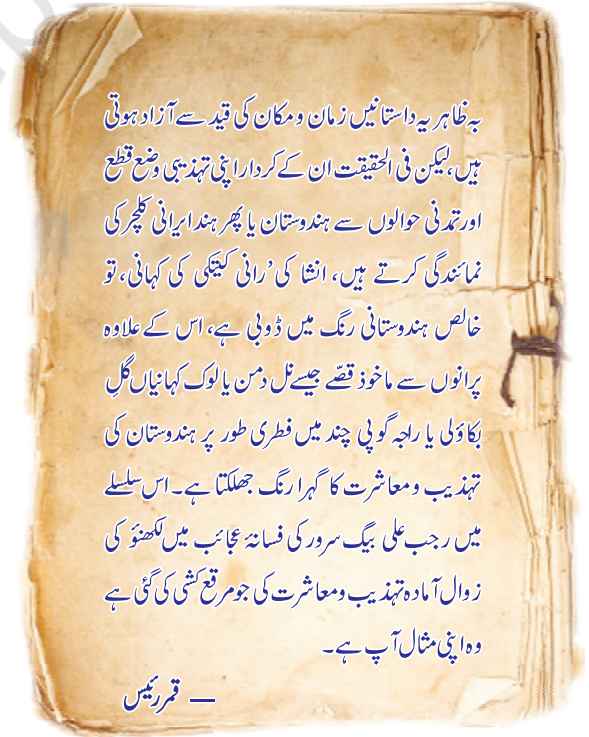 بہ ظاہر یہ داستانیں زمان و مکان کی قید سے آزاد ہوتی
ہیں، لیکن فی الحقیقت ان کے کردار اپنی تہذیبی وضع قطع
اور تمدنی حوالوں سے ہندوستان یا پھر ہند ایرانی کلچر کی
نمائندگی کرتے ہیں، انشا کی ’رانی کیتکی کی کہانی‘، تو
خالص ہندوستانی رنگ میں ڈوبی ہے، اس کے علاوہ
پرانوں سے ماخوذ قصّے جیسے نل دمن یا لوک کہانیاں گلِ
بکاؤلی یا راجہ گوپی چند میں فطری طور پر ہندوستان کی
تہذیب و معاشرت کا گہرا رنگ جھلکتا ہے۔ اس سلسلے
میں رجب علی بیگ سرور کی فسانۂ عجائب میں لکھنؤ کی
زوال آمادہ تہذیب و معاشرت کی جو مرقع کشی کی گئی ہے
وہ اپنی مثال آپ ہے۔
— قمر رئیس